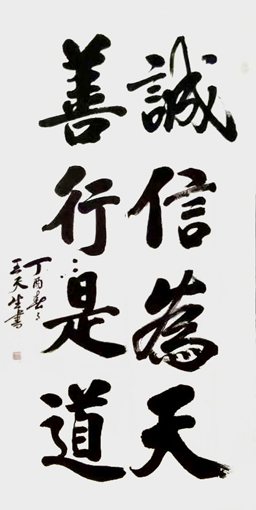 誠信為天
善行是道
丁酉春
王天生書